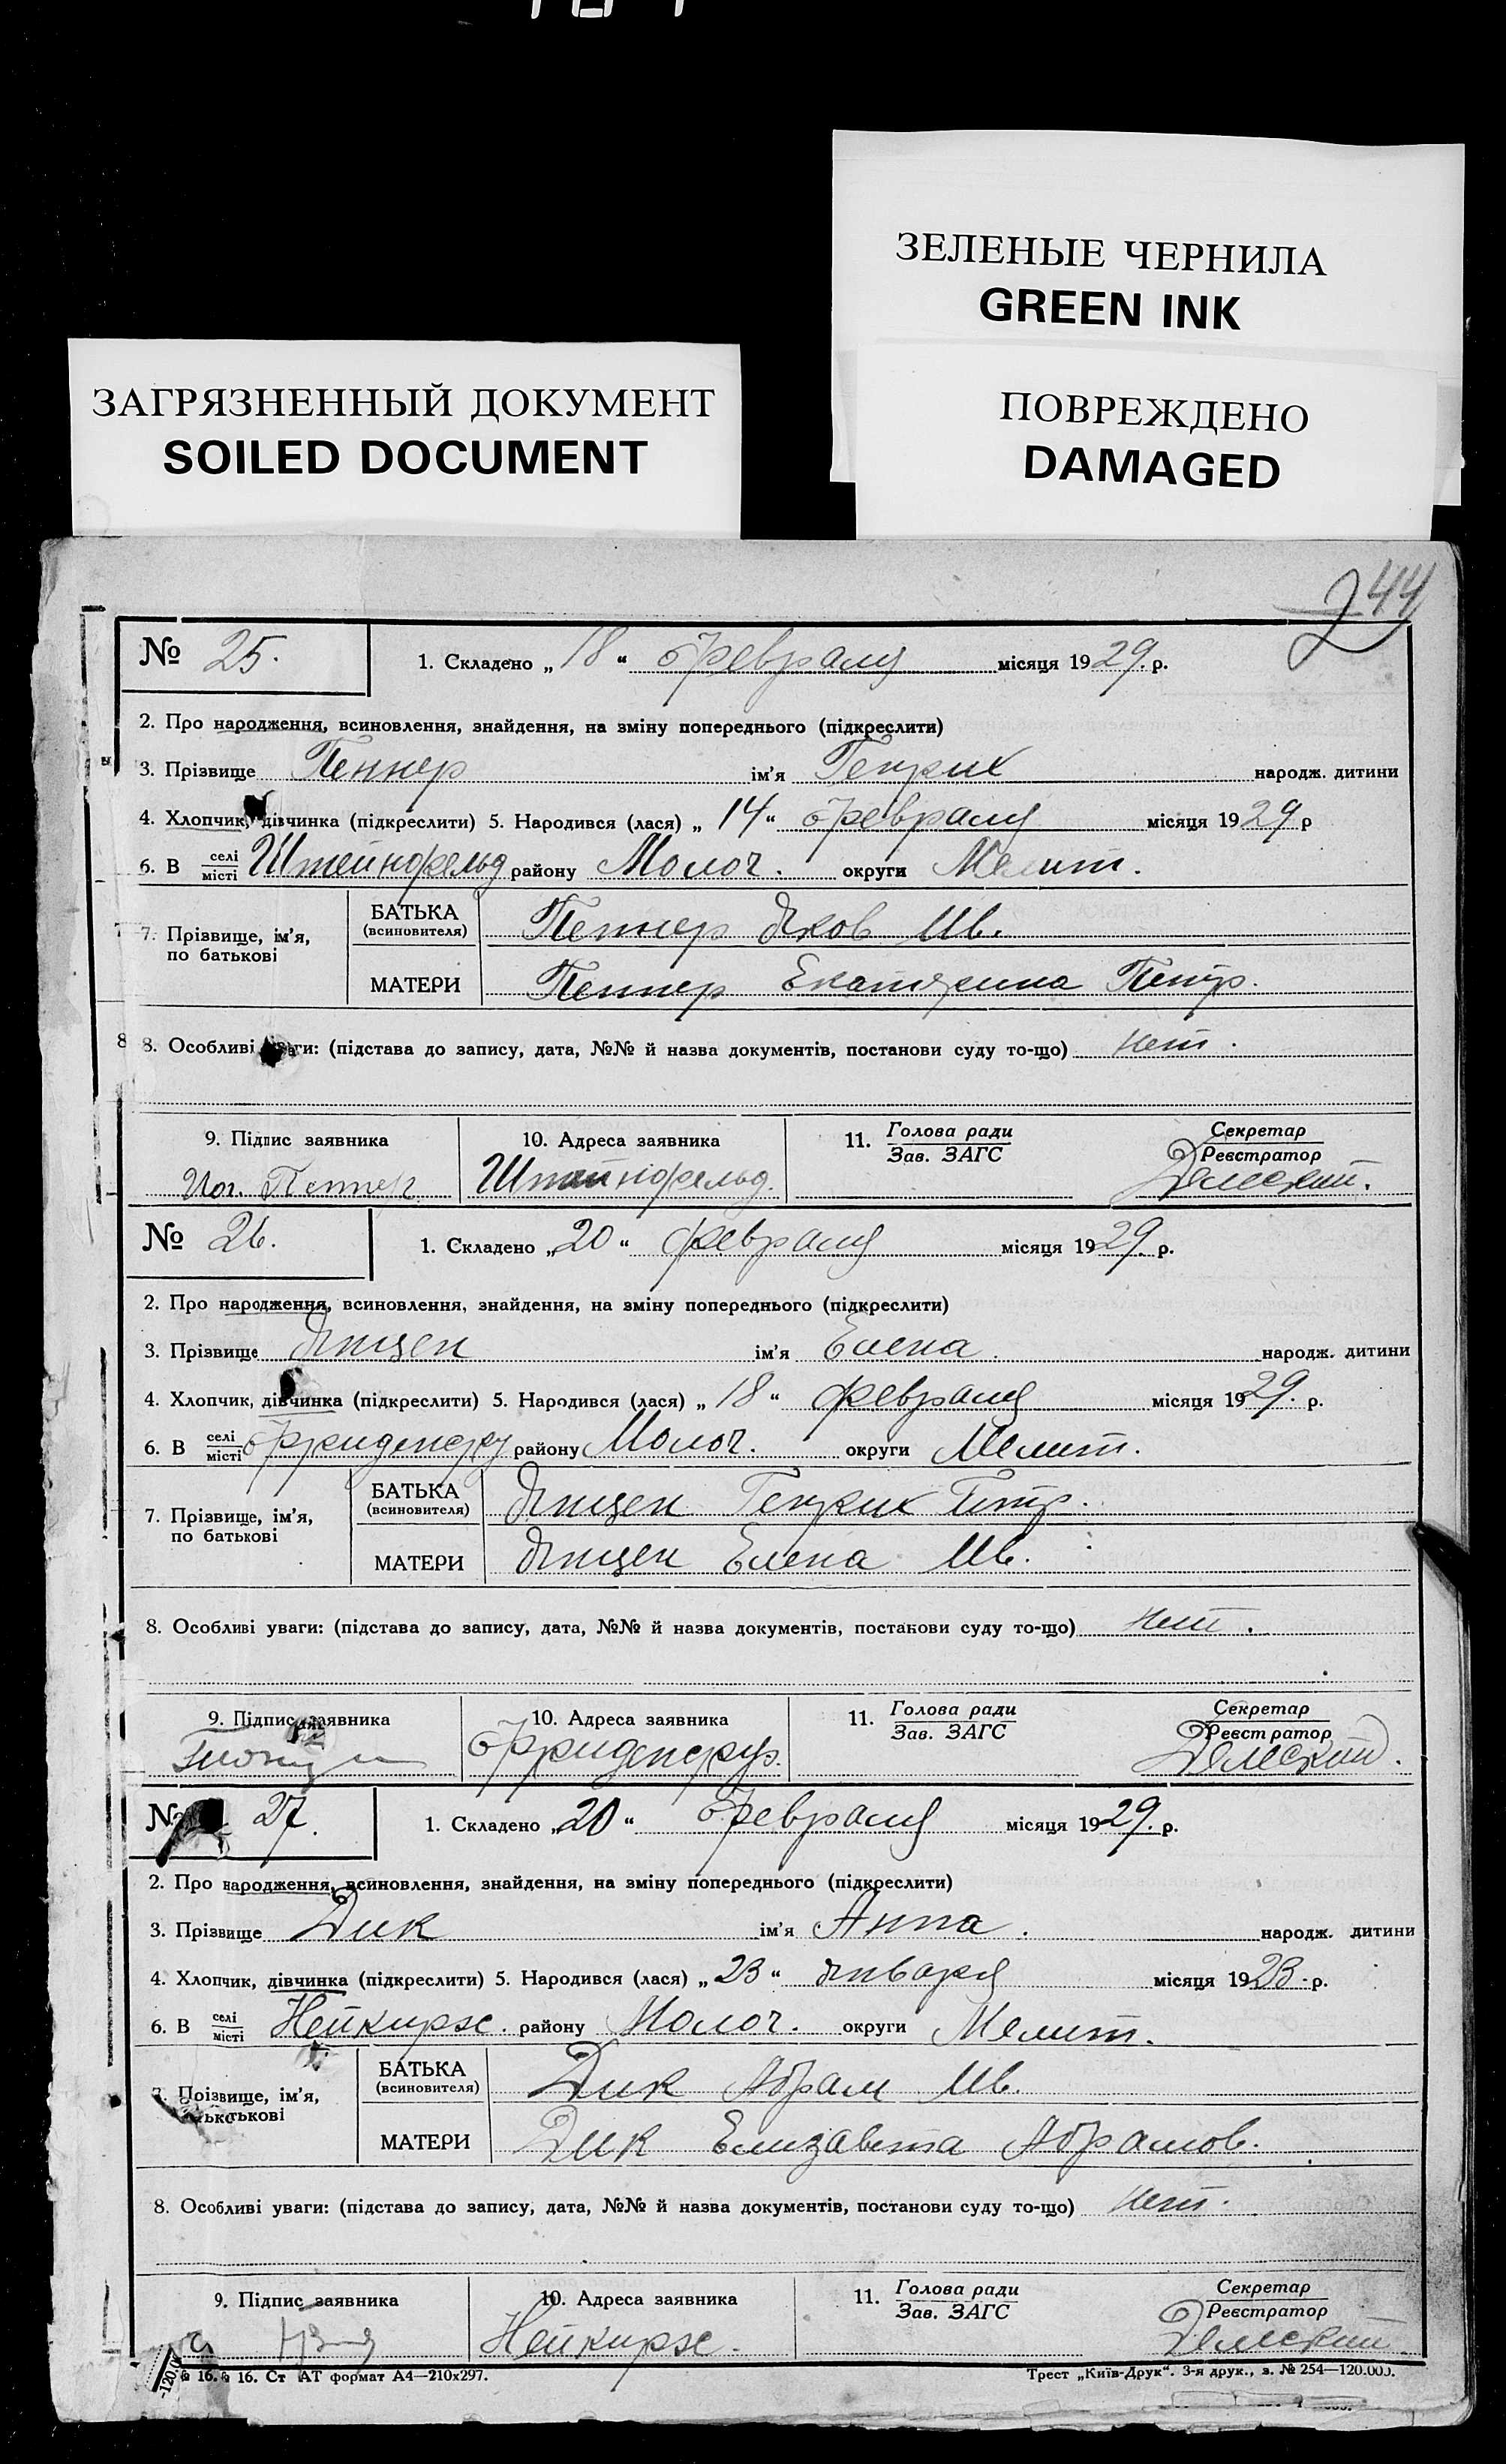 ЗЕЛЕНЫЕ ЧЕРНИЛА
GREEN INK
ЗАГРЯЗНЕННЫЙ ДОКУМЕНТ
SOILED DOCUMENT
ПОВРЕЖДЕНО
DAMAGED
244
№ 25. 1. Складено „18“ февраля місяця 1929. р.
2. Про народження, всиновлення, знайдення, на зміну попереднього (підкреслити)
3. Прізвище Пеннер ім'я Генрих народж. дитини
4. Хлопчик, дівчинка (підкреслити) 5. Народився (лася) „14“ февраля місяця 1929 р
6. В селі місті Штейнфельд району Молоч. округи Мелит.
7. Прізвище, ім'я, по батькові
БАТЬКА (всиновителя) Пеннер Яков Ив.
МАТЕРИ Пеннер Екатерина Петр.
8. Особливі уваги: (підстава до запису, дата, №№ й назва документів, постанови суду то-що) нет.
9. Підпис заявника 10. Адреса заявника 11. Голова ради Зав. ЗАГС Секретар Реєстратор
Пеннер Штейнфельд.
№ 26. 1. Складено „20“ февраля місяця 1929. р.
2. Про народження, всиновлення, знайдення, на зміну попереднього (підкреслити)
3. Прізвище Янцен ім'я Елена. народж. дитини
4. Хлопчик, дівчинка (підкреслити) 5. Народився (лася) „18“ февраля місяця 1929. р.
6. В селі місті Фриденсру району Молоч. округи Мелит.
7. Прізвище, ім'я, по батькові
БАТЬКА (всиновителя) Янцен Генрих Петр.
МАТЕРИ Янцен Елена Ив.
8. Особливі уваги: (підстава до запису, дата, №№ й назва документів, постанови суду то-що) нет.
9. Підпис заявника 10. Адреса заявника 11. Голова ради Зав. ЗАГС Секретар Реєстратор
Фриденсру.
№ 27. 1. Складено „20“ февраля місяця 1929. р.
2. Про народження, всиновлення, знайдення, на зміну попереднього (підкреслити)
3. Прізвище Дик ім'я Анна. народж. дитини
4. Хлопчик, дівчинка (підкреслити) 5. Народився (лася) „23“ января місяця 1923. р.
6. В селі місті Нейкирх. району Молоч. округи Мелит.
7. Прізвище, ім'я, по батькові
БАТЬКА (всиновителя) Дик Абрам Ив.
МАТЕРИ Дик Елизавета Абрамов.
8. Особливі уваги: (підстава до запису, дата, №№ й назва документів, постанови суду то-що) нет.
9. Підпис заявника 10. Адреса заявника 11. Голова ради Зав. ЗАГС Секретар Реєстратор
Нейкирх.
16. Ст АТ формат А4—210х297. Трест „Київ-Друк“. 3-я друк., з. № 254—120.000.